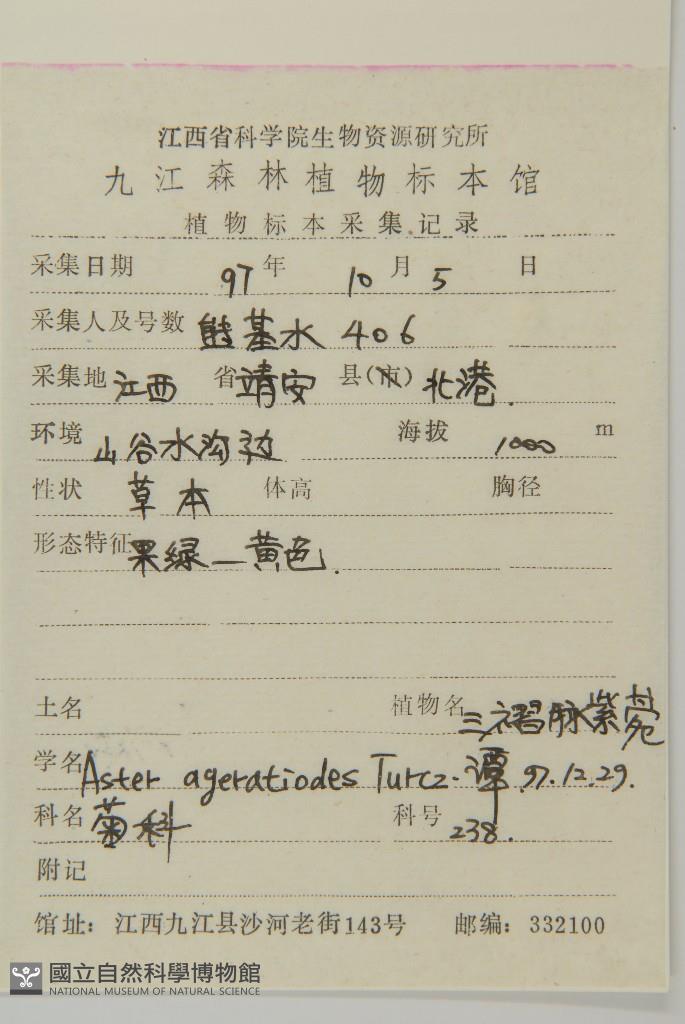 江西省科学院生物资源研究所
九江森林植物标本馆
植物标本采集记录
采集日期 97 年 10 月 5 日
采集人及号数 熊基水 406
采集地 江西 省 靖安 县(市) 北港.
环境 山谷水沟边 海拔 1000 m
性状 草本 体高 胸径
形态特征 果绿—黄色.
土名 植物名 三褶脉紫菀
学名 Aster ageratiodes Turcz. 谭.97.12.29.
科名 菊科 科号 238.
附记
馆址：江西九江县沙河老街143号 邮编：332100
國立自然科學博物館
NATIONAL MUSEUM OF NATURAL SCIENCE